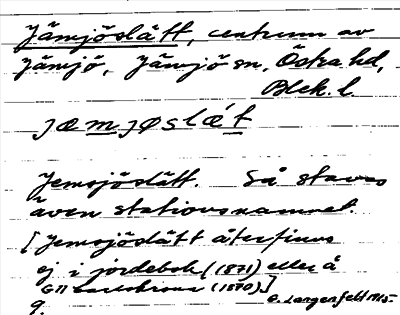 Jämjöslätt, centrum av
Jämjö, Jämjö sn, Östra hd,
Blek. l.
jæmjøslæ´t
Jemsjöslätt. Så stavas
även stationsnamnet.
[Jemsjöslätt återfinns
ej i jordebok (1871) eller å
G11 Carlskrona (1870).]
E. Langenfelt 1915.